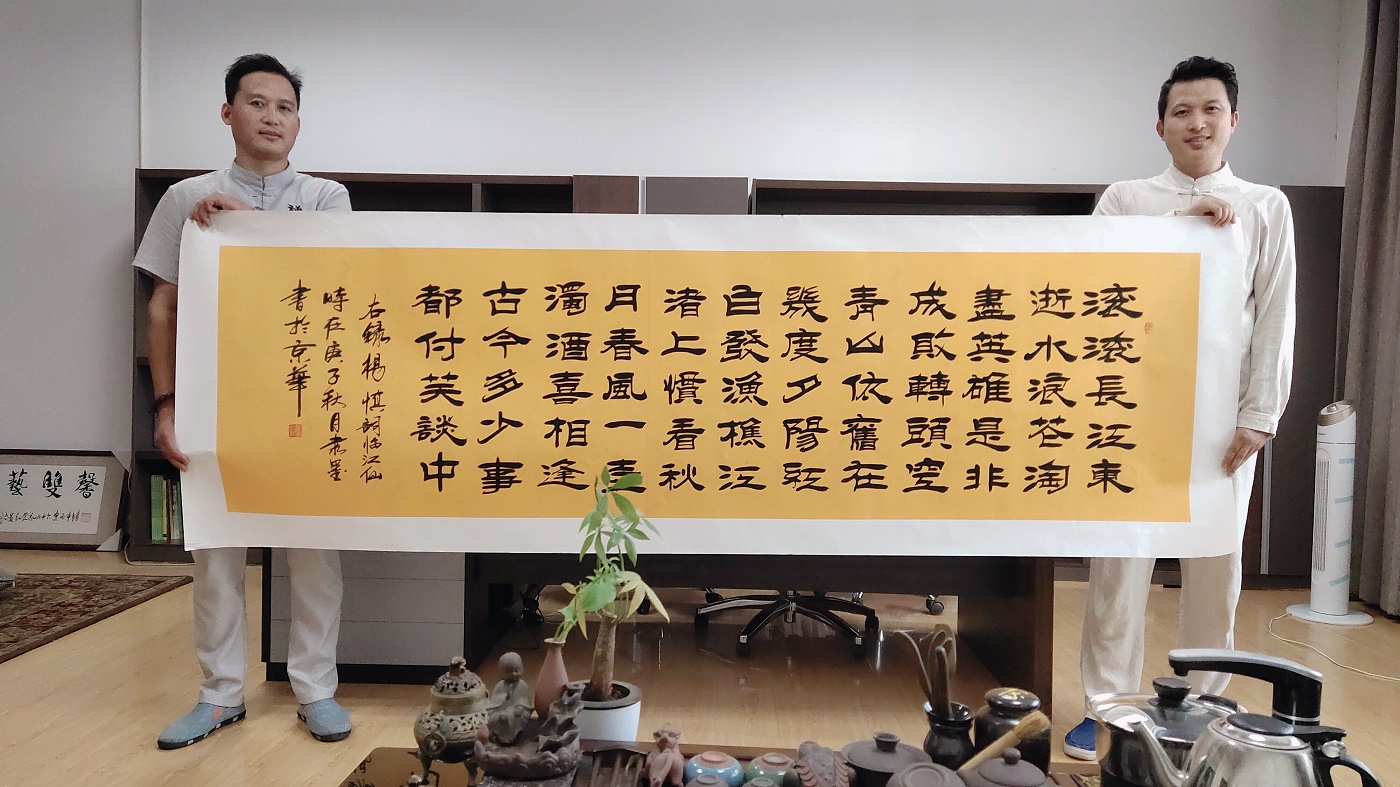 滚滚長江東
逝水浪花淘
盡英雄是非
成敗轉頭空
青山依舊在
幾度夕陽紅
白發漁樵江
渚上慣看秋
月春風一壺
濁酒喜相逢
古今多少事
都付笑談中
右録楊慎詞臨江仙
時在庚子秋月墨
書於京華
藝雙馨